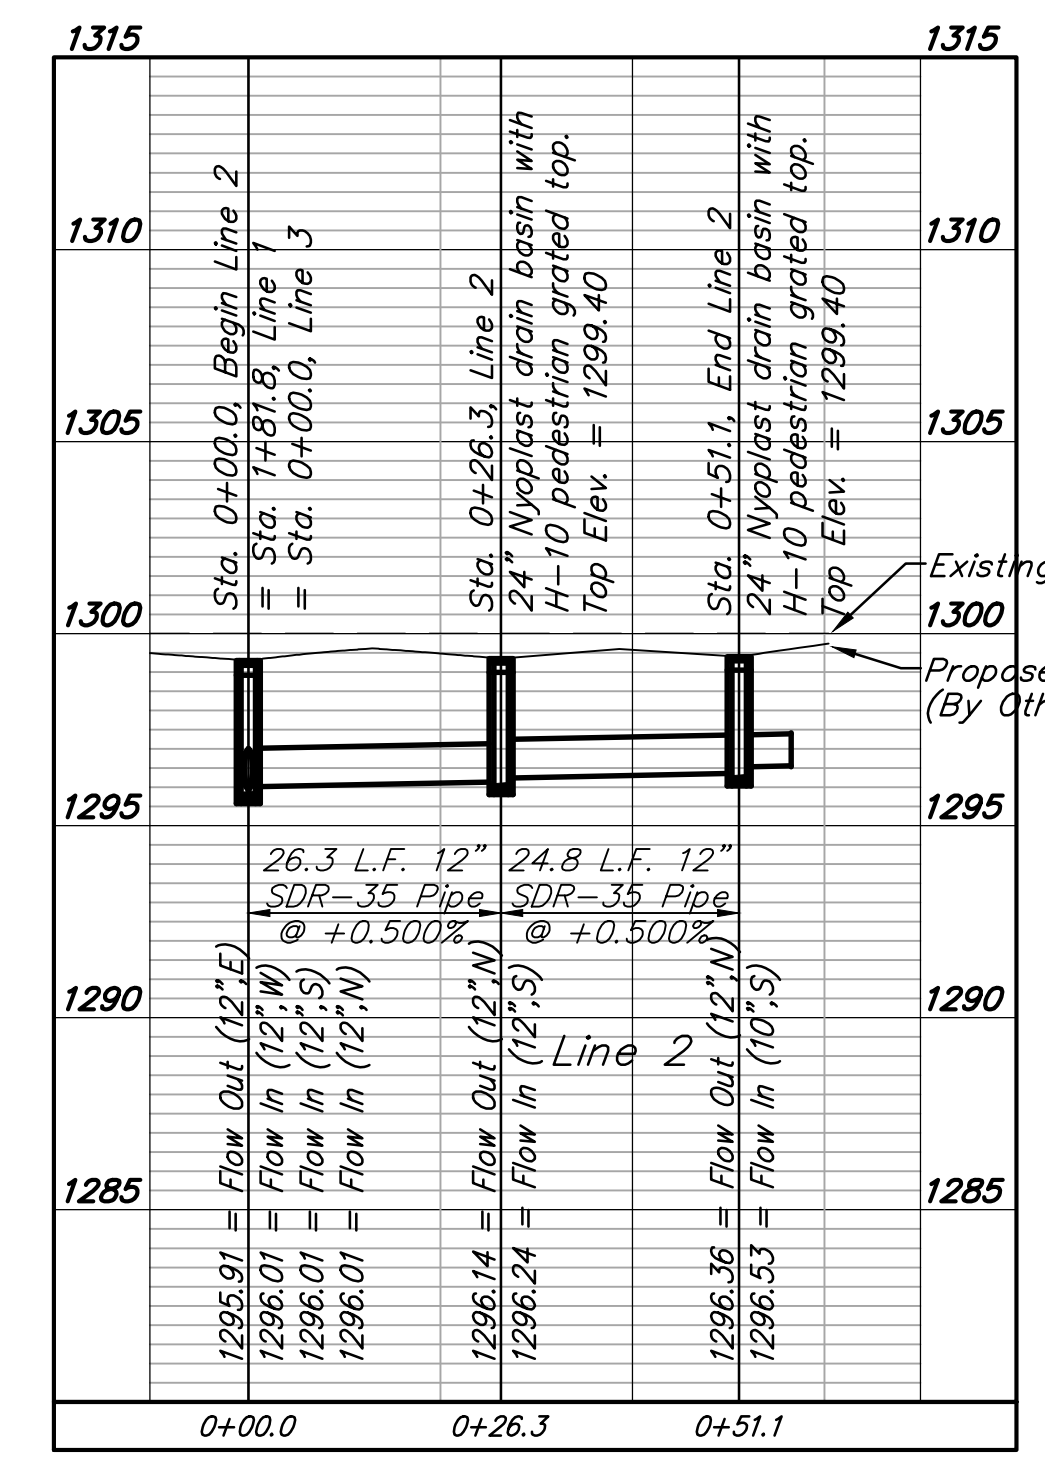 1315
1315
1310
1310
1305
1305
1300
1300
1295
1295
1290
1290
1285
1285
Sta. 0+00.0, Begin Line 2
= Sta. 1+81.8, Line 1
= Sta. 0+00.0, Line 3
Sta. 0+26.3, Line 2
24" Nyoplast drain basin with
H-10 pedestrian grated top.
Top Elev. = 1299.40
Sta. 0+51.1, End Line 2
24" Nyoplast drain basin with
H-10 pedestrian grated top.
Top Elev. = 1299.40
Existing
Propose
(By Oth
26.3 L.F. 12"
SDR-35 Pipe
@ +0.500%
24.8 L.F. 12"
SDR-35 Pipe
@ +0.500%
1295.91 = Flow Out (12",E)
1296.01 = Flow In (12",W)
1296.01 = Flow In (12",S)
1296.01 = Flow In (12",N)
1296.14 = Flow Out (12",N)
1296.24 = Flow In (12",S)
Line 2
1296.36 = Flow Out (12",N)
1296.53 = Flow In (10",S)
0+00.0
0+26.3
0+51.1